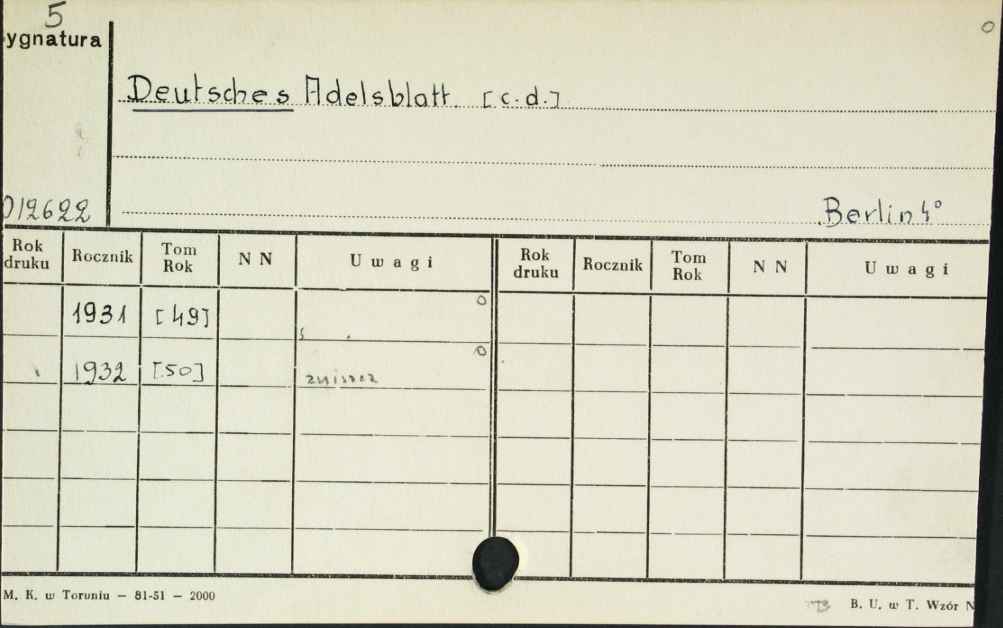 5
ygnatura
Deutsches Adelsblatt. [c.d.]
012622
Berlin 4°
Rok druku Rocznik Tom Rok N N Uwagi Rok druku Rocznik Tom Rok N N Uwagi
1931 [49] o
1932 [50] o
M. K. w Toruniu — 81-51 — 2000
B. U. w T. Wzór N